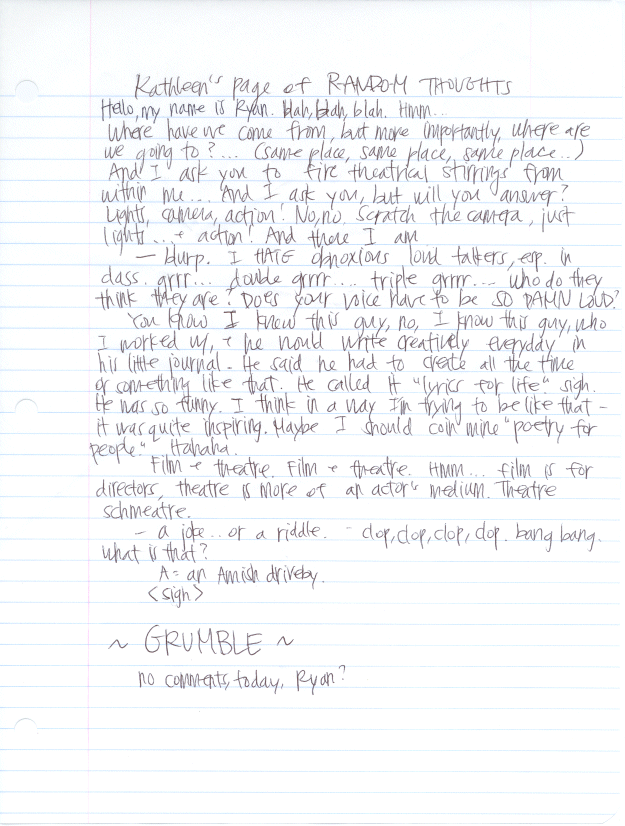 Kathleen's page of RANDOM THOUGHTS
Hello, my name is Ryan. blah, blah, blah. Hmm...
Where have we come from, but more importantly, where are
we going to?... (same place, same place, same place..)
And I ask you to fire theatrical stirrings from
within me... And I ask you, but will you answer?
Lights, camera, action! No, no. Scratch the camera, just
lights...+ action! And there I am
— blurp. I HATE obnoxious loud talkers, esp. in
class. grrr... double grrrr.... triple grrrr.... who do they
think they are? Does your voice have to be SO DAMN LOUD?
You know I knew this guy, no, I know this guy, who
I worked w/, + he would write creatively everyday in
his little journal - He said he had to create all the time
or something like that. He called it "lyrics for life" sigh.
He was so funny. I think in a way I'm trying to be like that -
it was quite inspiring. Maybe I should coin mine "poetry for
people." Hahaha.
Film + theatre. Film + theatre. Hmm... film is for
directors, theatre is more of an actor's medium. Theatre
schmeatre.
- a joke.. or a riddle. - clop, clop, clop, clop. bang bang.
what is that?
A = an Amish driveby.
<sigh>
~ GRUMBLE ~
no comments, today, Ryan?